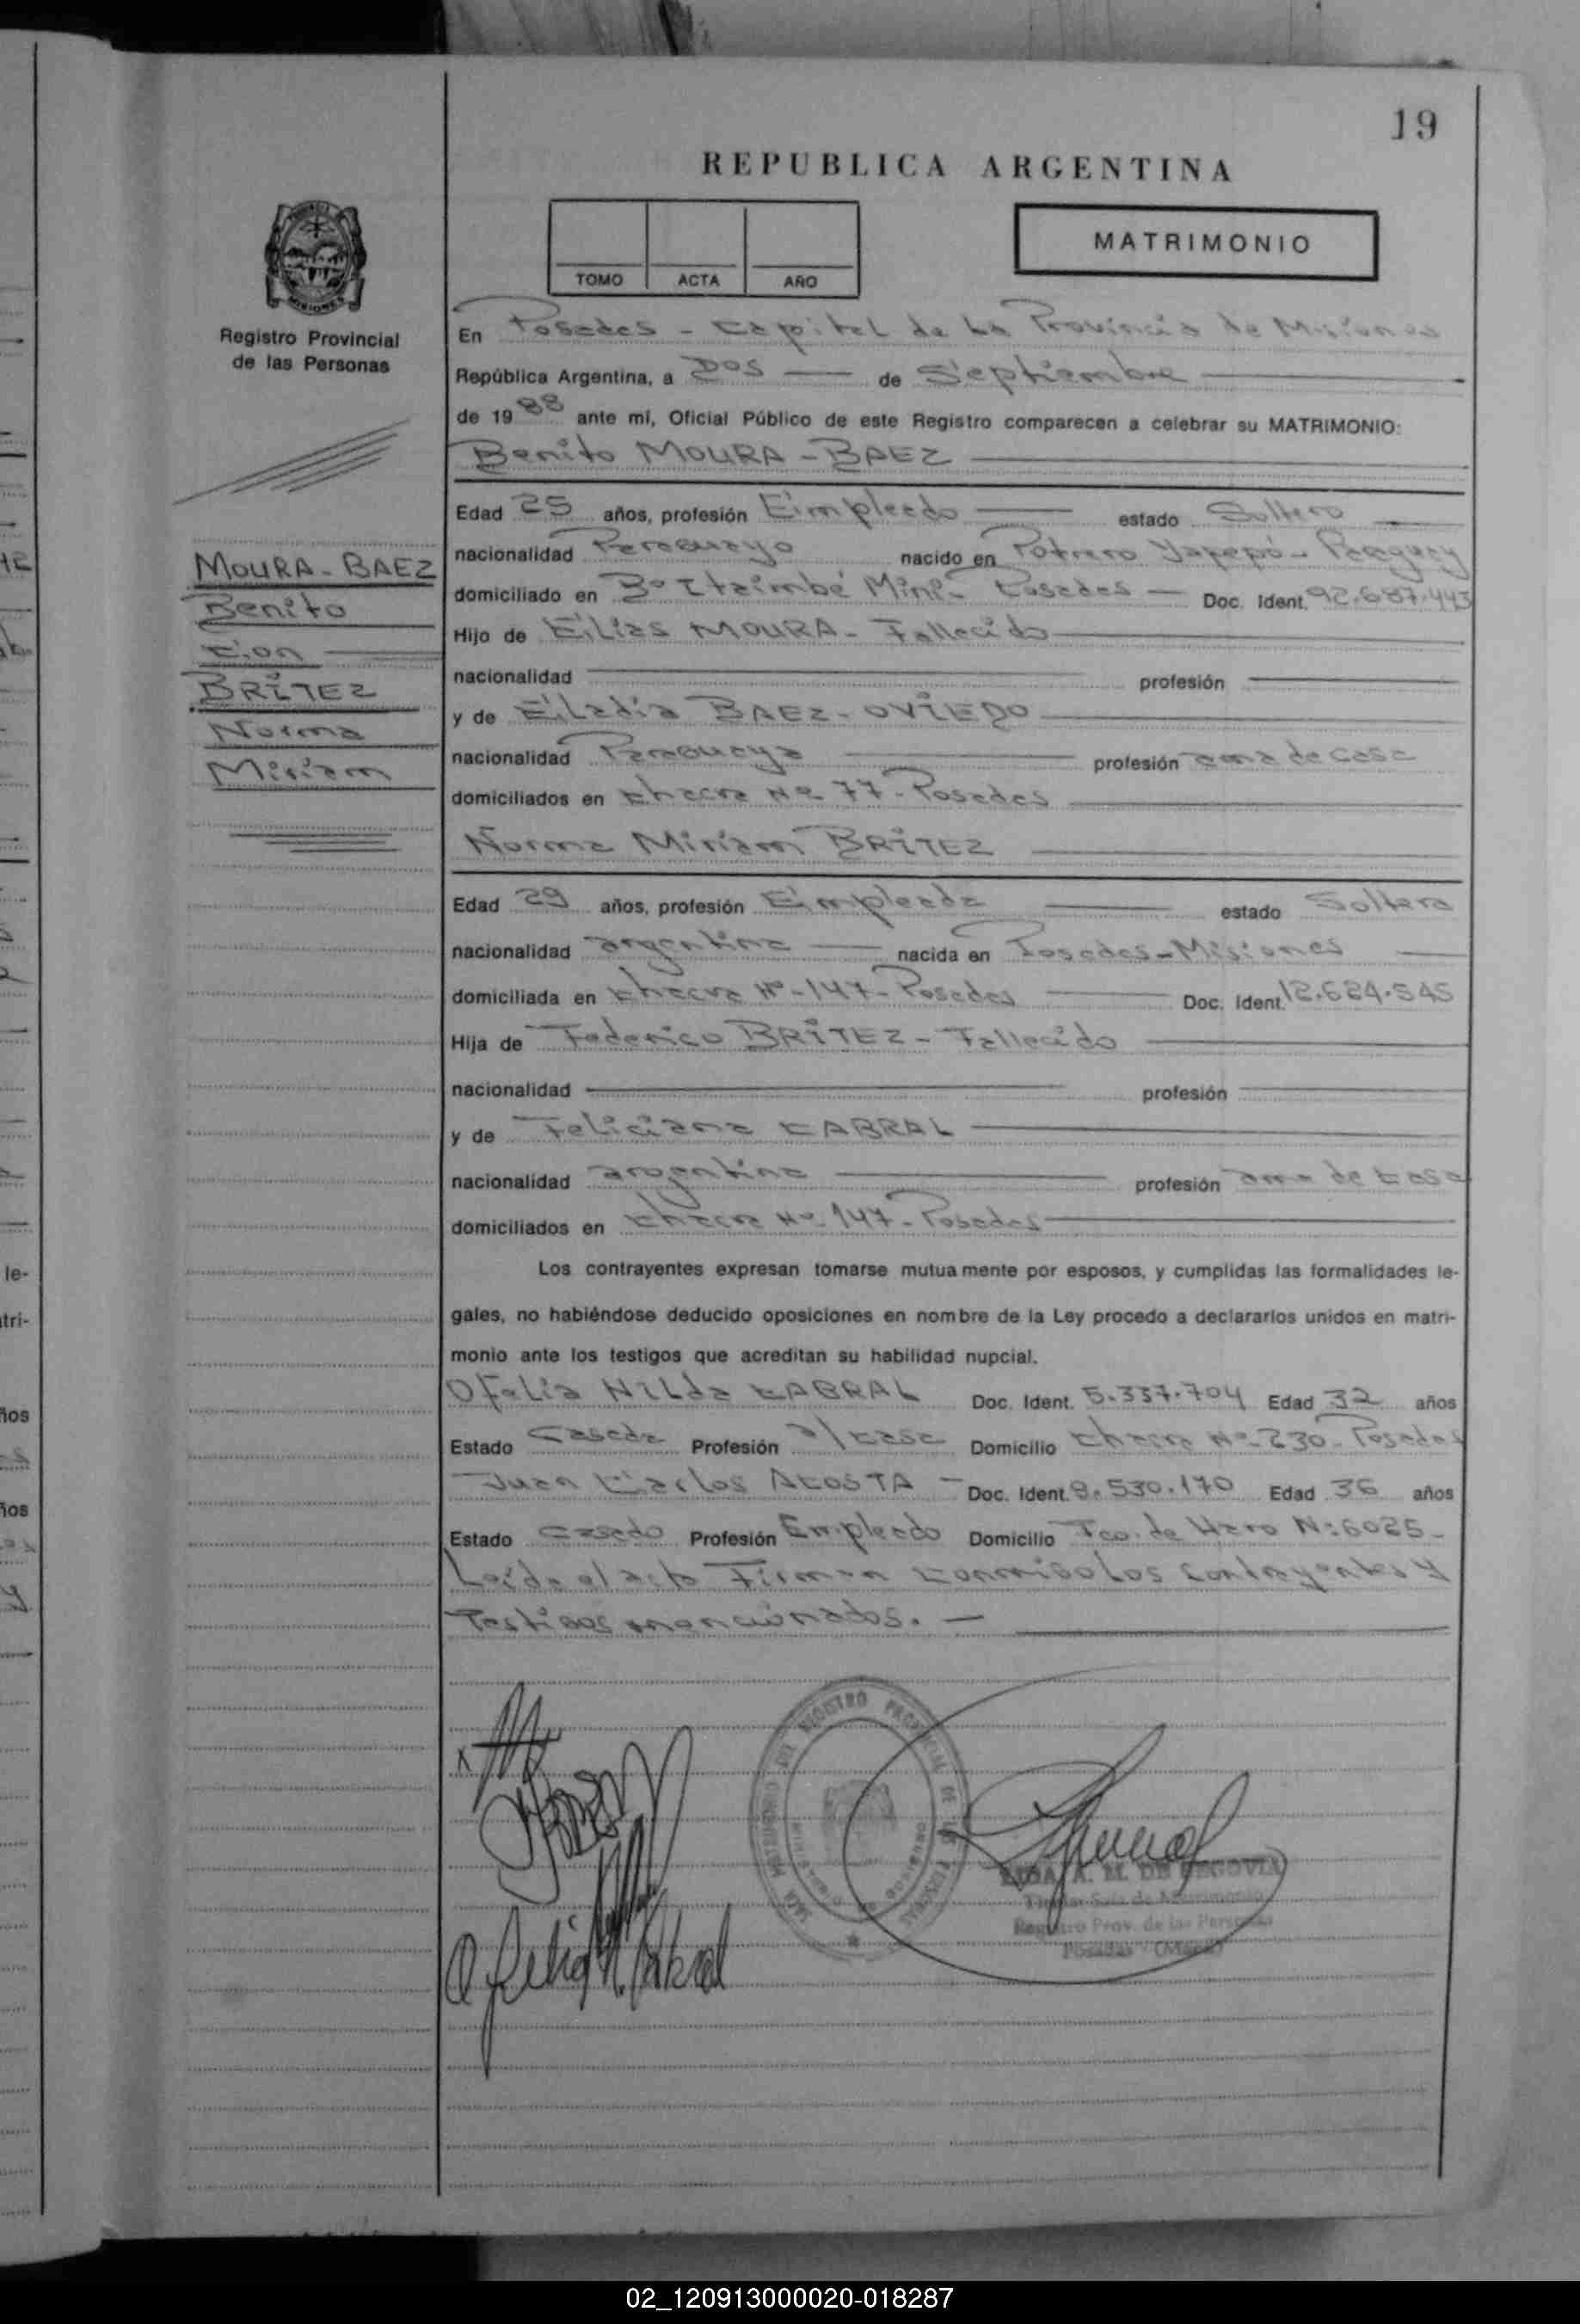 19
REPUBLICA ARGENTINA
MISIONES
Registro Provincial
de las Personas
TOMO ACTA AÑO
MATRIMONIO
En Posadas - Capital de la Provincia de Misiones
República Argentina, a Dos de Septiembre
de 1988 ante mí, Oficial Público de este Registro comparecen a celebrar su MATRIMONIO:
Benito MOURA - BAEZ
MOURA - BAEZ
Benito
Con
BRÍTEZ
Norma
Miriam
Edad 25 años, profesión Empleado estado Soltero
nacionalidad Paraguayo nacido en Potrero Yapepó - Paraguay
domiciliado en B° Itaimbé Mini - Posadas - Doc. Ident. 92.687.443
Hijo de Elías MOURA - Fallecido
nacionalidad profesión
y de Eladia BAEZ - OVIEDO
nacionalidad Paraguaya profesión ama de casa
domiciliados en Chacra Nº 77 - Posadas
Norma Miriam BRÍTEZ
Edad 29 años, profesión Empleada estado Soltera
nacionalidad argentina nacida en Posadas - Misiones
domiciliada en Chacra Nº - 147 - Posadas Doc. Ident. 12.624.545
Hija de Federico BRÍTEZ - Fallecido
nacionalidad profesión
y de Feliciana CABRAL
nacionalidad argentina profesión ama de casa
domiciliados en Chacra Nº 147 - Posadas
Los contrayentes expresan tomarse mutuamente por esposos, y cumplidas las formalidades le-
gales, no habiéndose deducido oposiciones en nombre de la Ley procedo a declararlos unidos en matri-
monio ante los testigos que acreditan su habilidad nupcial.
Ofelia Nilda CABRAL Doc. Ident. 5.337.704 Edad 32 años
Estado Casada Profesión a/casa Domicilio Chacra Nº 230 - Posadas
Juan Carlos ACOSTA - Doc. Ident. 8.530.170 Edad 36 años
Estado Casado Profesión Empleado Domicilio Fco. de Haro N: 6025 -
Leída el acta Firman conmigo los contrayentes y
Testigos mencionados. -
Ofelia N. Cabral
A. M. DE SEGOVIA
Titular Sala de Matrimonio
Registro Prov. de las Personas
Posadas
02_120913000020-018287